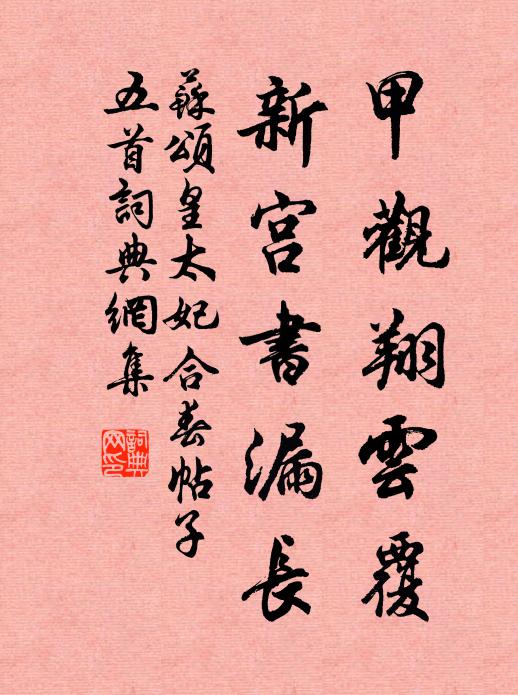 甲觀翔雲覆
新宮書漏長
蘇頌皇太妃合春帖子
五首詞典網集
詞典網印